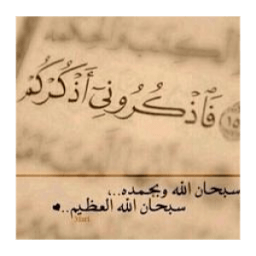 فَاذْكُرُونِيٓ أَذْكُرْكُمْ
سبحان الله وبحمده..،
سبحان الله العظيم..♥